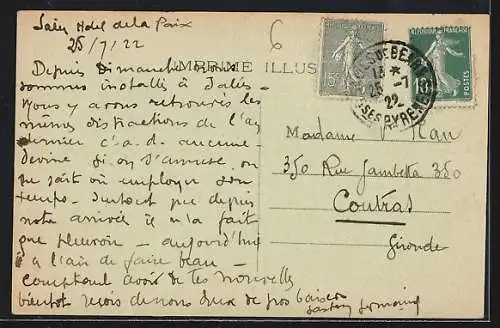 Hotel de la Paix
25/7/22
6
Depuis Dimanche nous
sommes installés à Salies
nous y avons retrouvé les
mêmes distractions de l'an
dernier c.a.d. aucune
devine si on s'amuse on
ne sait où employer son
temps. Surtout que depuis
notre arrivée il n'a fait
que pleuvoir - aujourd'hui
a l'air de faire beau -
avoir de tes nouvelles
bientôt reçois de nous deux de gros baisers
Gaston Germaine
CARTE ILLUS
15
13
25 -7
22
BSES PYRENEES
REPUBLIQUE FRANÇAISE
10
POSTES
Madame
350 Rue Gambetta 350
Coutras
Gironde